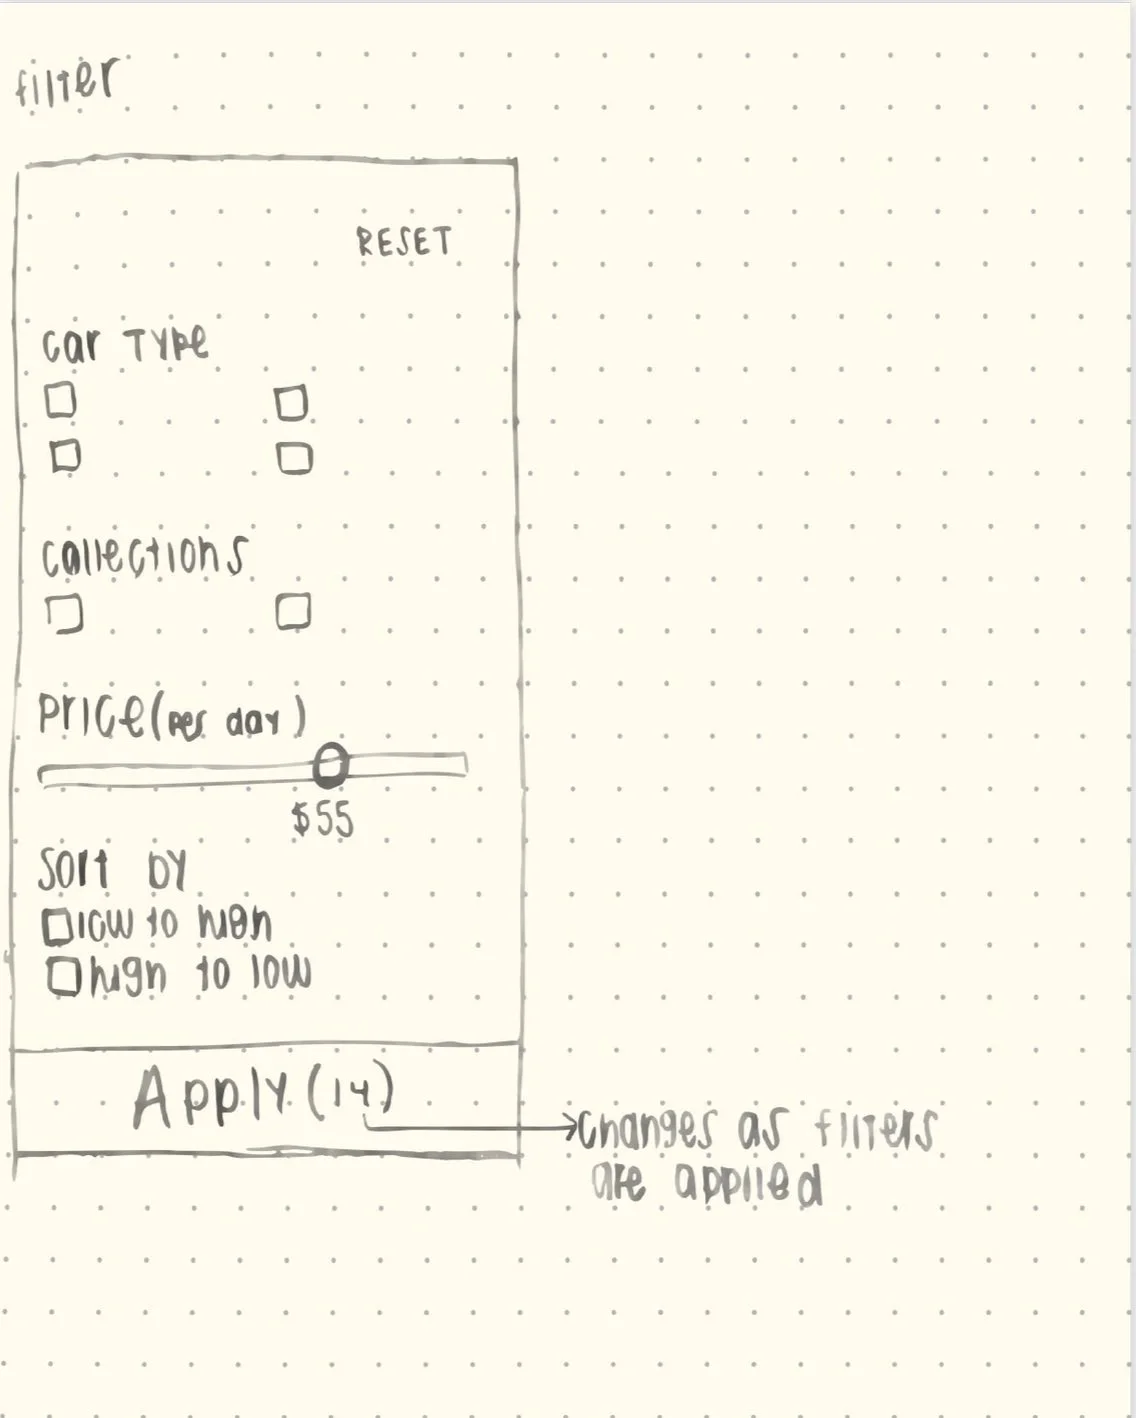 filter
RESET
car TYPe
collections
Price (per day)
$55
Sort by
low to high
high to low
Apply (14)
changes as filters
are applied